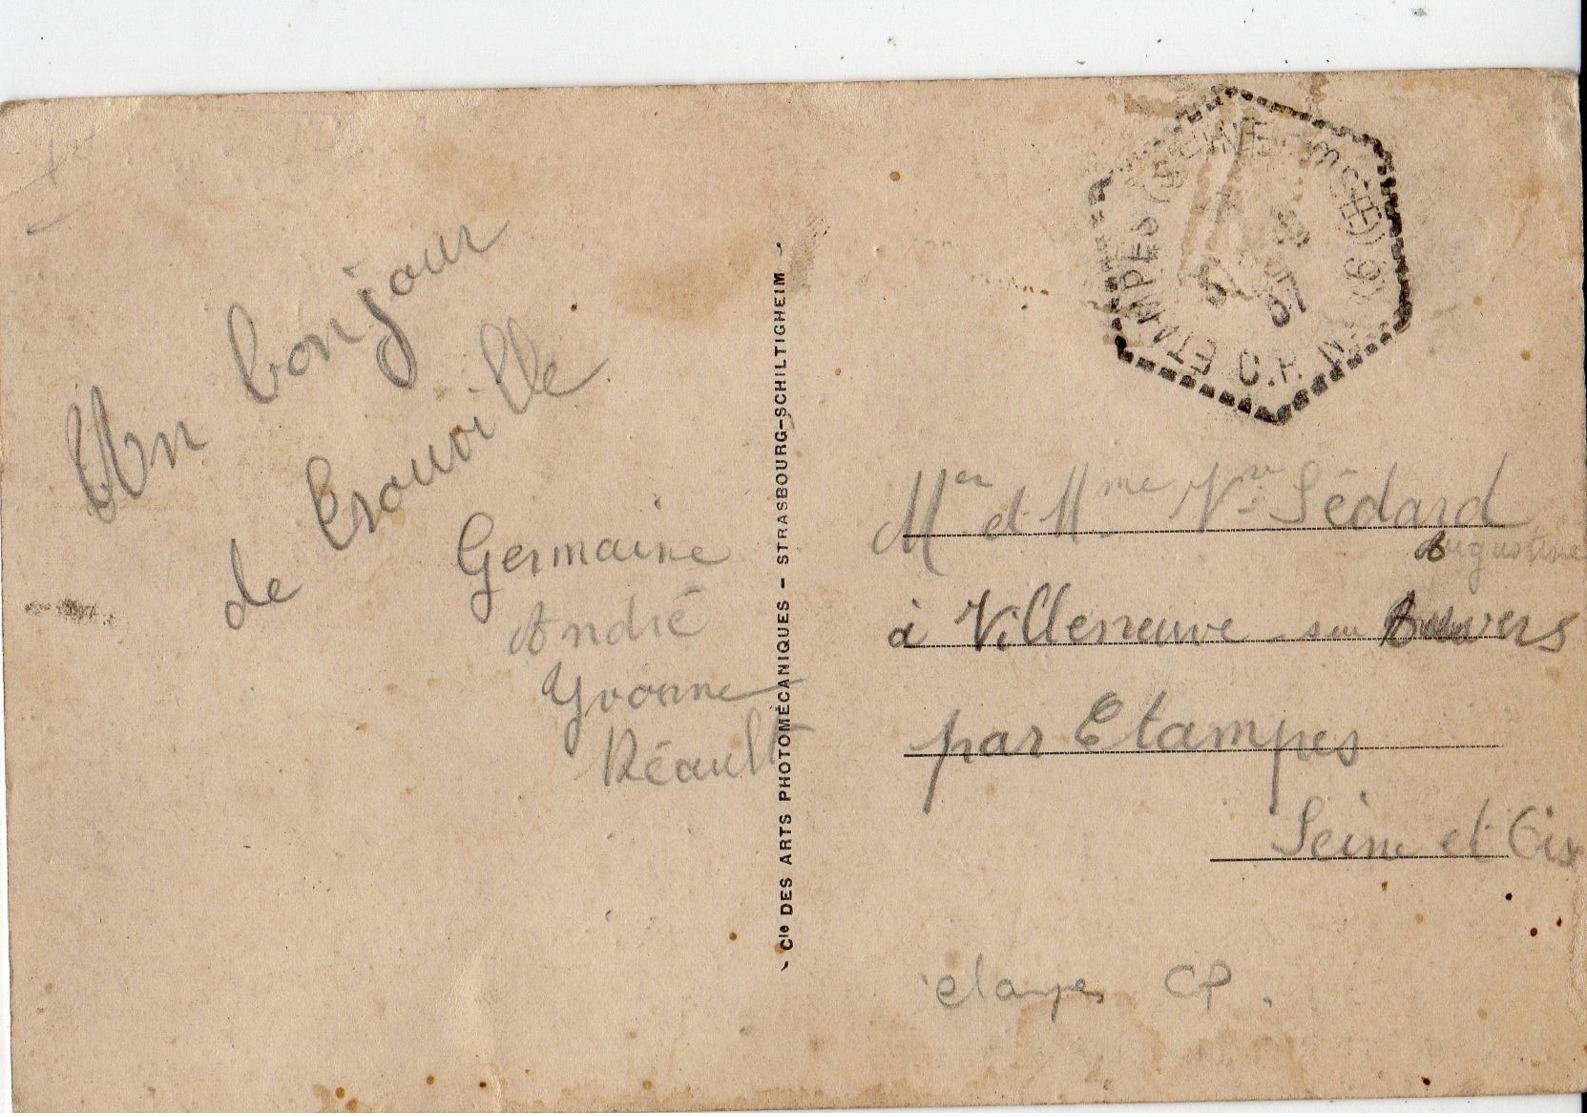 Un bonjour
de Crouville
Germaine
André
Yvonne
Réault
Cie DES ARTS PHOTOMÉCANIQUES - STRASBOURG-SCHILTIGHEIM
ETAMPES (SEINE-ET-O
C.P. N° 6
37
Mr et Mme Vve Sédard
Augustine
à Villeneuve - sur Auvers
par Etampes
Seine et Oise
etampes CP.